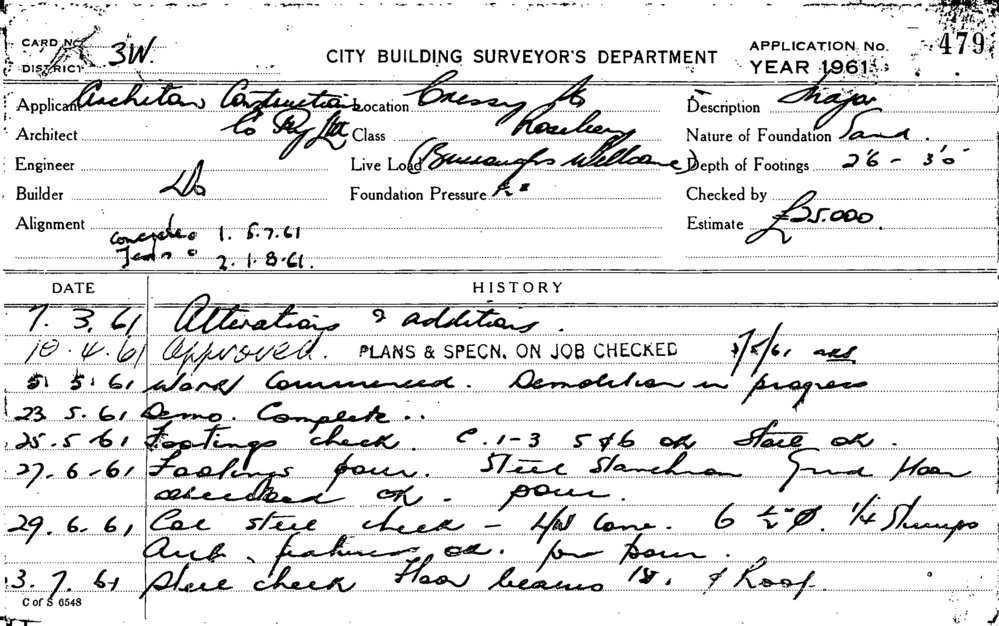 CARD No. 3W. CITY BUILDING SURVEYOR'S DEPARTMENT APPLICATION No. 479
DISTRICT YEAR 1961
Applicant Constructions Location Cressy St Description Major
Architect Co Pty Ltd Class Rosebery Nature of Foundation Sand.
Engineer Live Load (Burroughs Wellcome) Depth of Footings 2'6 - 3'0
Builder Do Foundation Pressure Checked by
Alignment Estimate £25.000
Concrete 1. 5.7.61
2. 1.8.61.
DATE HISTORY
7. 3. 61 Alterations & additions.
10. 4. 61 Approved. PLANS & SPECN. ON JOB CHECKED
5. 5. 61 Work Commenced. Demolition in progress
23. 5. 61 Demo. Complete..
25. 5. 61 Footings check. C. 1-3 5 & 6 ok Steel ok.
27. 6. 61 Footings pour. Steel Stanchion Grnd floor
checked ok. pour.
29. 6. 61 Col steel check - 6 ½"Ø. ¼ Stirrups
ok. for pour.
3. 7. 61 Steel check floor beams 1st. & Roof.
C of S 6548